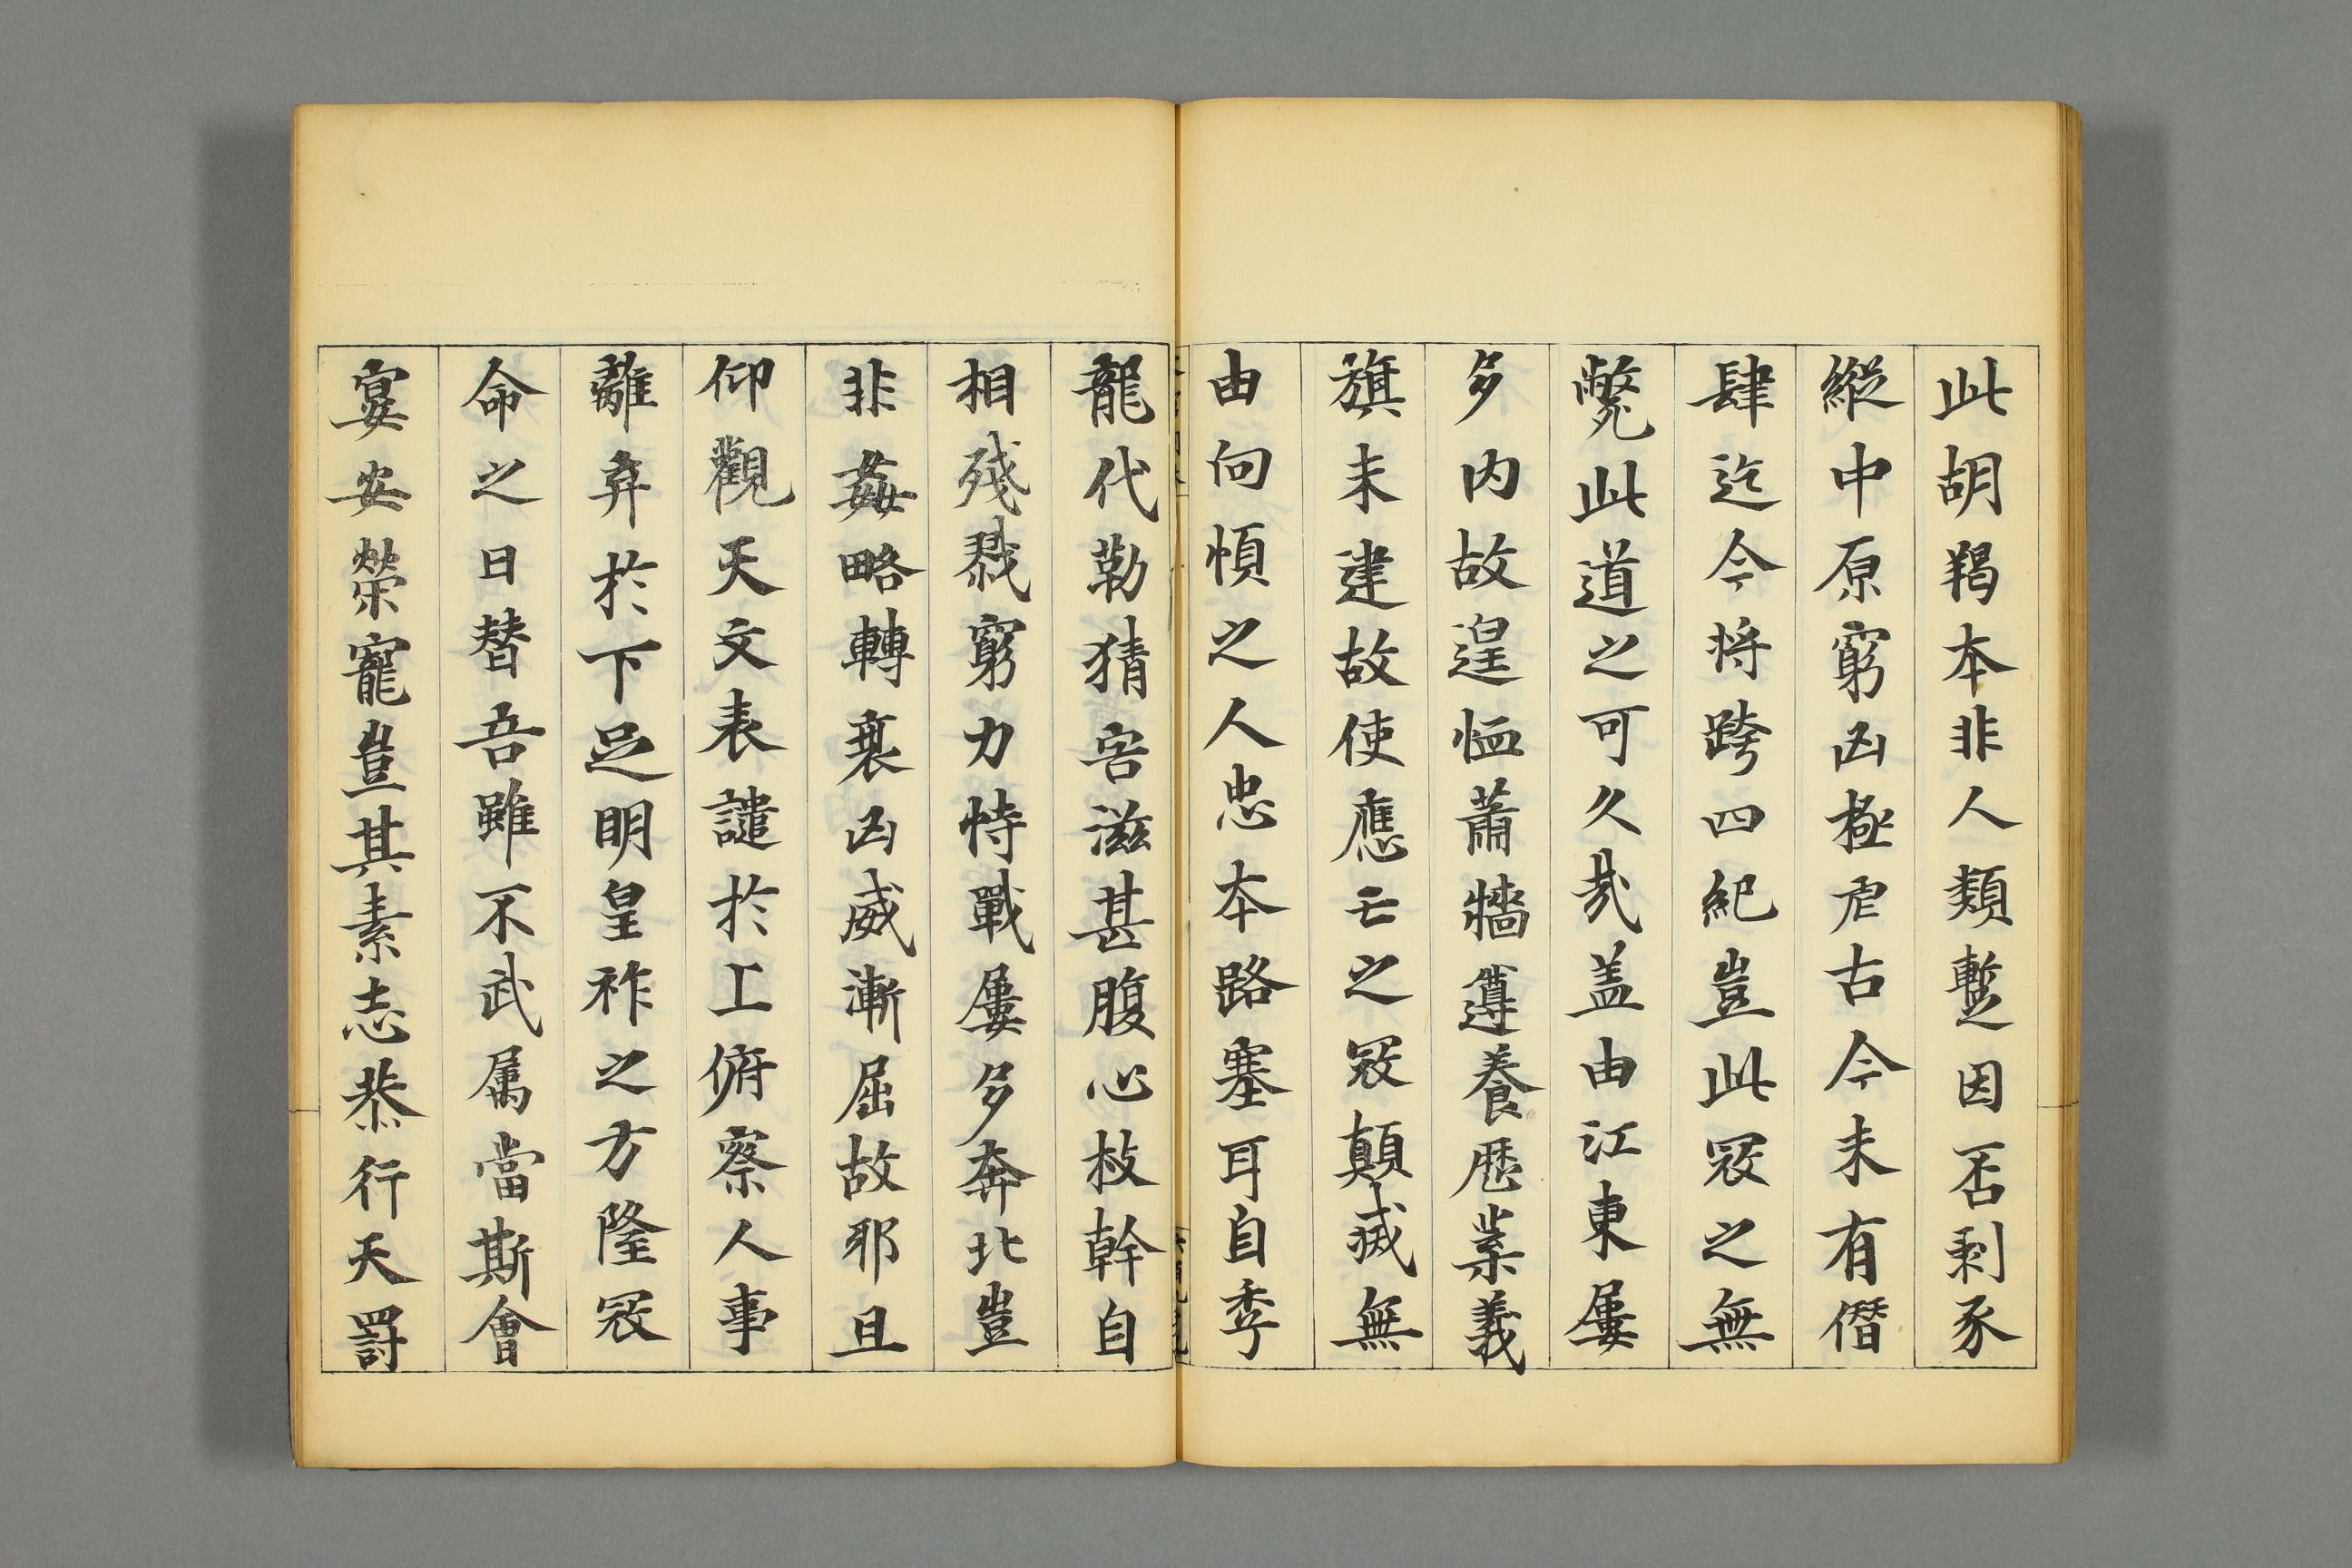 此胡羯本非人類蹔因否剥豕
縱中原窮凶極虐古今未有僭
肆迄今将跨四紀豈此冦之無
斃此道之可久㢤盖由江東屢
多内故遑恤蕭牆遵養歷葉義
旗未建故使應亡之冦顛滅無
由向慎之人忠本路塞耳自季
龍代勒猜害滋甚腹心枝幹自
相殘戮窮力恃戰屢多奔北豈
非姦略轉衰凶威漸屈故耶且
仰觀天文表譴於上俯察人事
離弃於下足明皇祚之方隆冦
命之日替吾雖不武属當斯會
宴安榮寵豈其素志恭行天罸